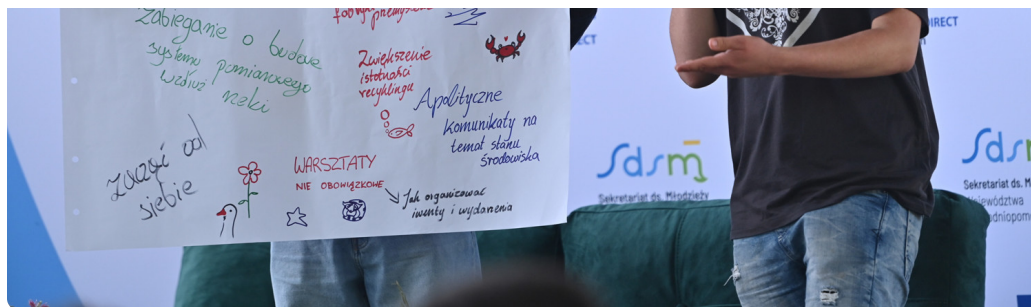 Zabieganie o budowę
systemu pomiarowego
wzdłuż rzeki
zacząć od
siebie
Zwiększenie
istotności
recyklingu
Apolityczne
komunikaty na
temat stanu
środowiska
WARSZTATY
NIE OBOWIĄZKOWE
Jak organizować
iwenty i wydarzenia
DIRECT
CT
Sdsm
Sekretariat ds. Młodzieży
Sds
Sekretariat ds. M
Województwa
odniopom